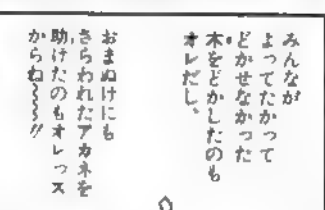 みんなが
よってたかって
どかせなかった
木をどかしたのも
オレだし、
おまぬけにも
さらわれたアカネを
助けたのもオレっス
からね〜〜〜!!